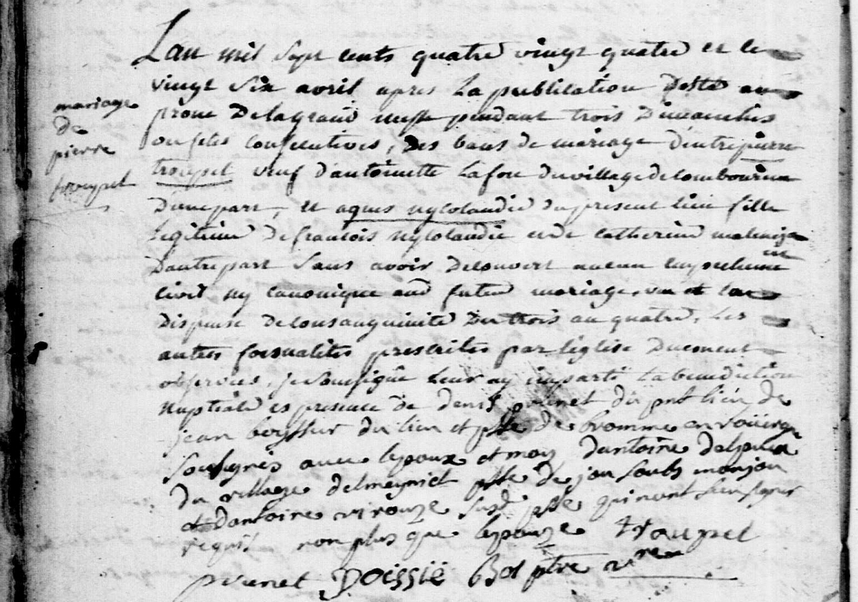 mariage
de
pierre
troupel
Lan mil sept cents quatre vingt quatre et le
vingt six avril apres La publication faitte au
prone Delagrand messe pendant trois Dimanches
ou fetes consecutives, Des bans de mariage d'entre pierre
troupel veuf d'antoinette Lafon du village de
Dune part, et agnes du present lieu fille
legitime de francois et de catherine
Dautre part sans avoir Decouvert aucun empechement
civil ny canonique aud futeur mariage, vu et
Dispense de consanguinité Du trois au quatre, Les
autres formalites prescrites par l'église Duement
observées, je soussigné Leur ay imparti La benediction
Nuptiale es presence de denis prunet du pnt lieu de
jean du lieu et psse de bromme en roüergue
soussignés avec lepoux et moy dantoine
du village delmeyniel psse de jou soubs monjou
et dantoine virouze susd psse qui nont seu signer
requis non plus que lepouze troupel
prunet Boissié Bol ptre